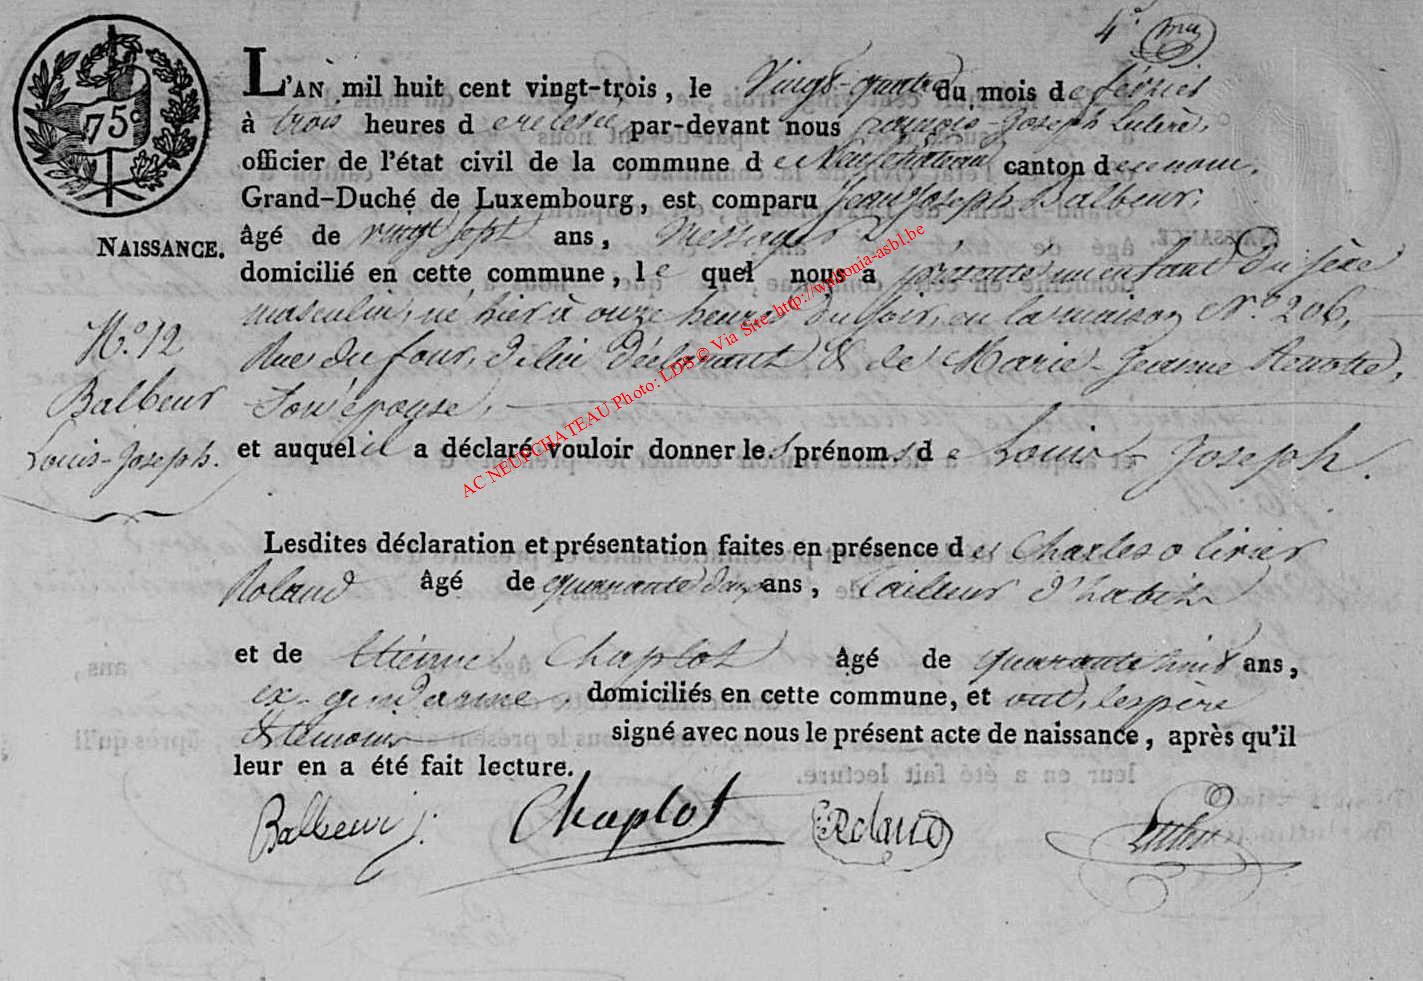 4.e
75c
L'AN mil huit cent vingt-trois, le Vingt-quatre du mois de février
à trois heures de relevée par-devant nous françois-Joseph
officier de l'état civil de la commune de Neufchateau canton de ce nom,
Grand-Duché de Luxembourg, est comparu Jean Joseph Balbeur,
NAISSANCE.
âgé de vingt sept ans, Messager,
domicilié en cette commune, lequel nous a présenté un enfant du sexe
masculin, né hier à onze heures du soir, en la maison N.o 206,
N.o 12
Rue du four, de lui déclarant & de Marie-Jeanne
Balbeur
Son épouse,
Louis-Joseph.
et auquel il a déclaré vouloir donner les prénoms de Louis-Joseph.
Lesdites déclaration et présentation faites en présence de Charles olivier
Roland âgé de quarante deux ans, tailleur d'habits
et de Etienne Chaplot âgé de quarante huit ans,
ex-gendarme, domiciliés en cette commune, et ont, les père
& témoins signé avec nous le présent acte de naissance, après qu'il
leur en a été fait lecture.
Balbeur j. Chaplot Roland
AC NEUFCHATEAU Photo: LDS © Via Site http://wallonia-asbl.be